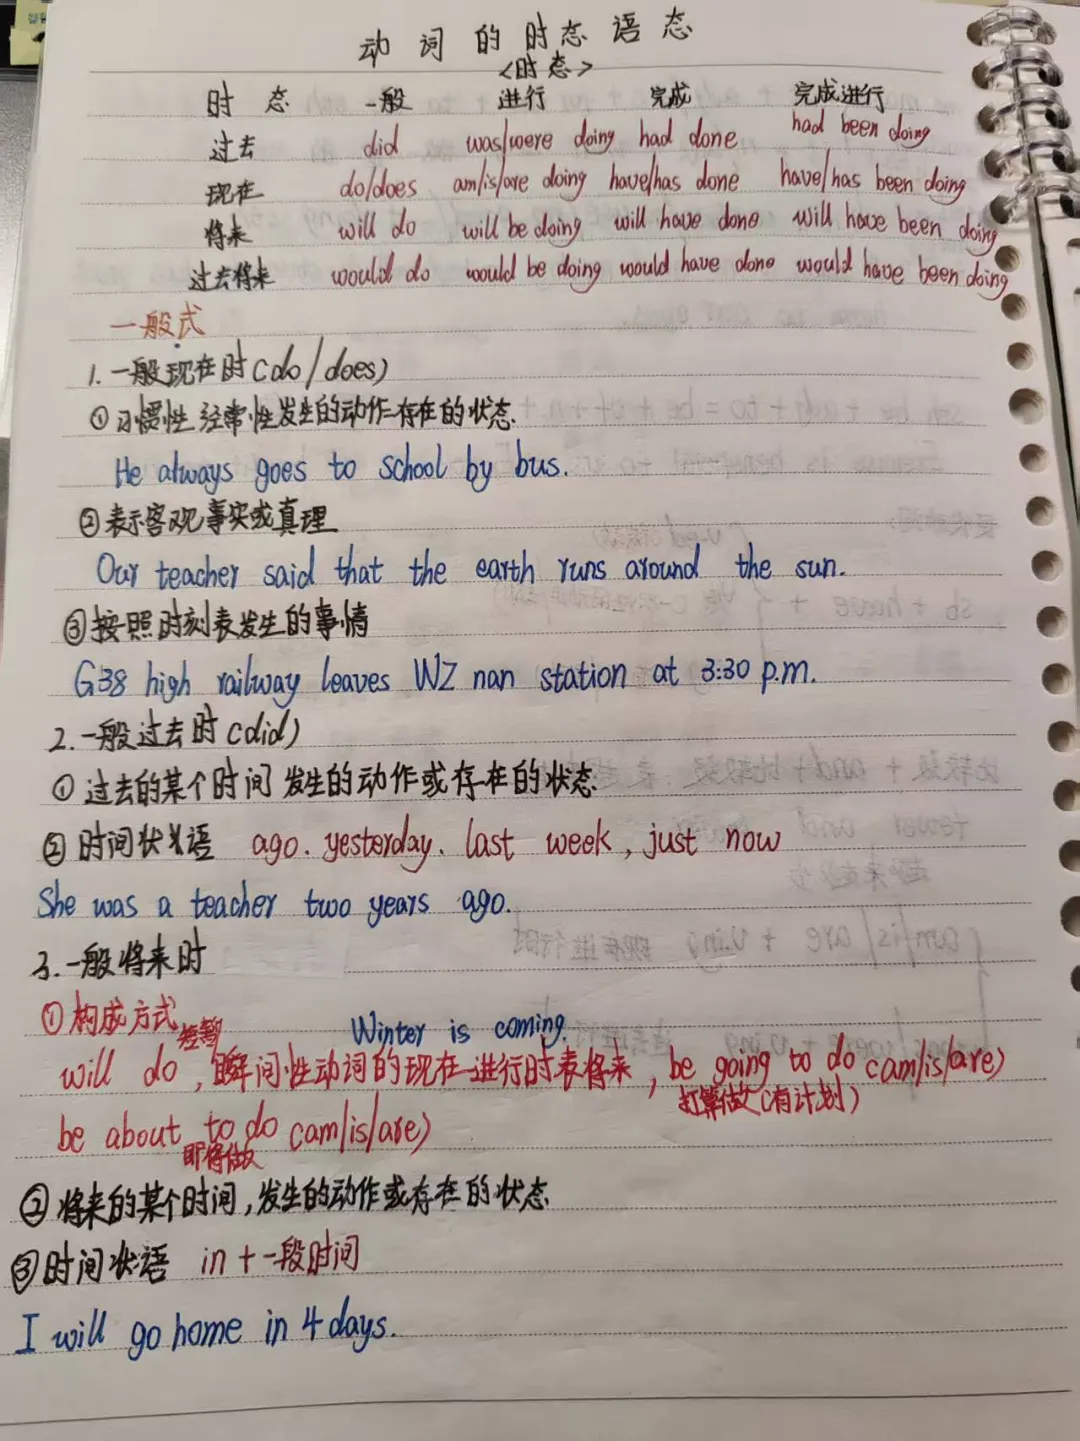 动词的时态语态
<时态>
时态 一般 进行 完成 完成进行
过去 did was/were doing had done had been doing
现在 do/does am/is/are doing have/has done have/has been doing
将来 will do will be doing will have done will have been doing
过去将来 would do would be doing would have done would have been doing
一般式
1. 一般现在时(do/does)
①习惯性 经常性发生的动作存在的状态.
He always goes to school by bus.
②表示客观事实或真理
Our teacher said that the earth runs around the sun.
③按照时刻表发生的事情
G38 high railway leaves WZ nan station at 3:30 p.m.
2. 一般过去时(did)
①过去的某个时间发生的动作或存在的状态
②时间状语 ago. yesterday. last week, just now
She was a teacher two years ago.
3. 一般将来时
①构成方式
短暂 Winter is coming.
will do, 瞬间性动词的现在进行时表将来, be going to do (am/is/are)
打算做(有计划)
be about to do (am/is/are)
即将做
②将来的某个时间,发生的动作或存在的状态
③时间状语 in + 一段时间
I will go home in 4 days.